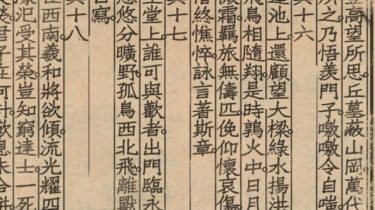 登高望所思丘墓蔽山岡萬代
所之乃悟羨門子噭噭令自嗤
其十六
蓬池上還顧望大梁綠水揚洪
飛鳥相隨翔是時鶉火中日月
微霜羈旅無儔匹俛仰懷哀傷
惜終憔悴詠言著斯章
其十七
堂上誰可與歡者出門臨永
悠悠分曠野孤鳥西北飛離獸
自寫
其十八
在西南羲和將欲傾流光耀四
濛汜受其榮豈知窮達士一死
君子在何許歎息未合并